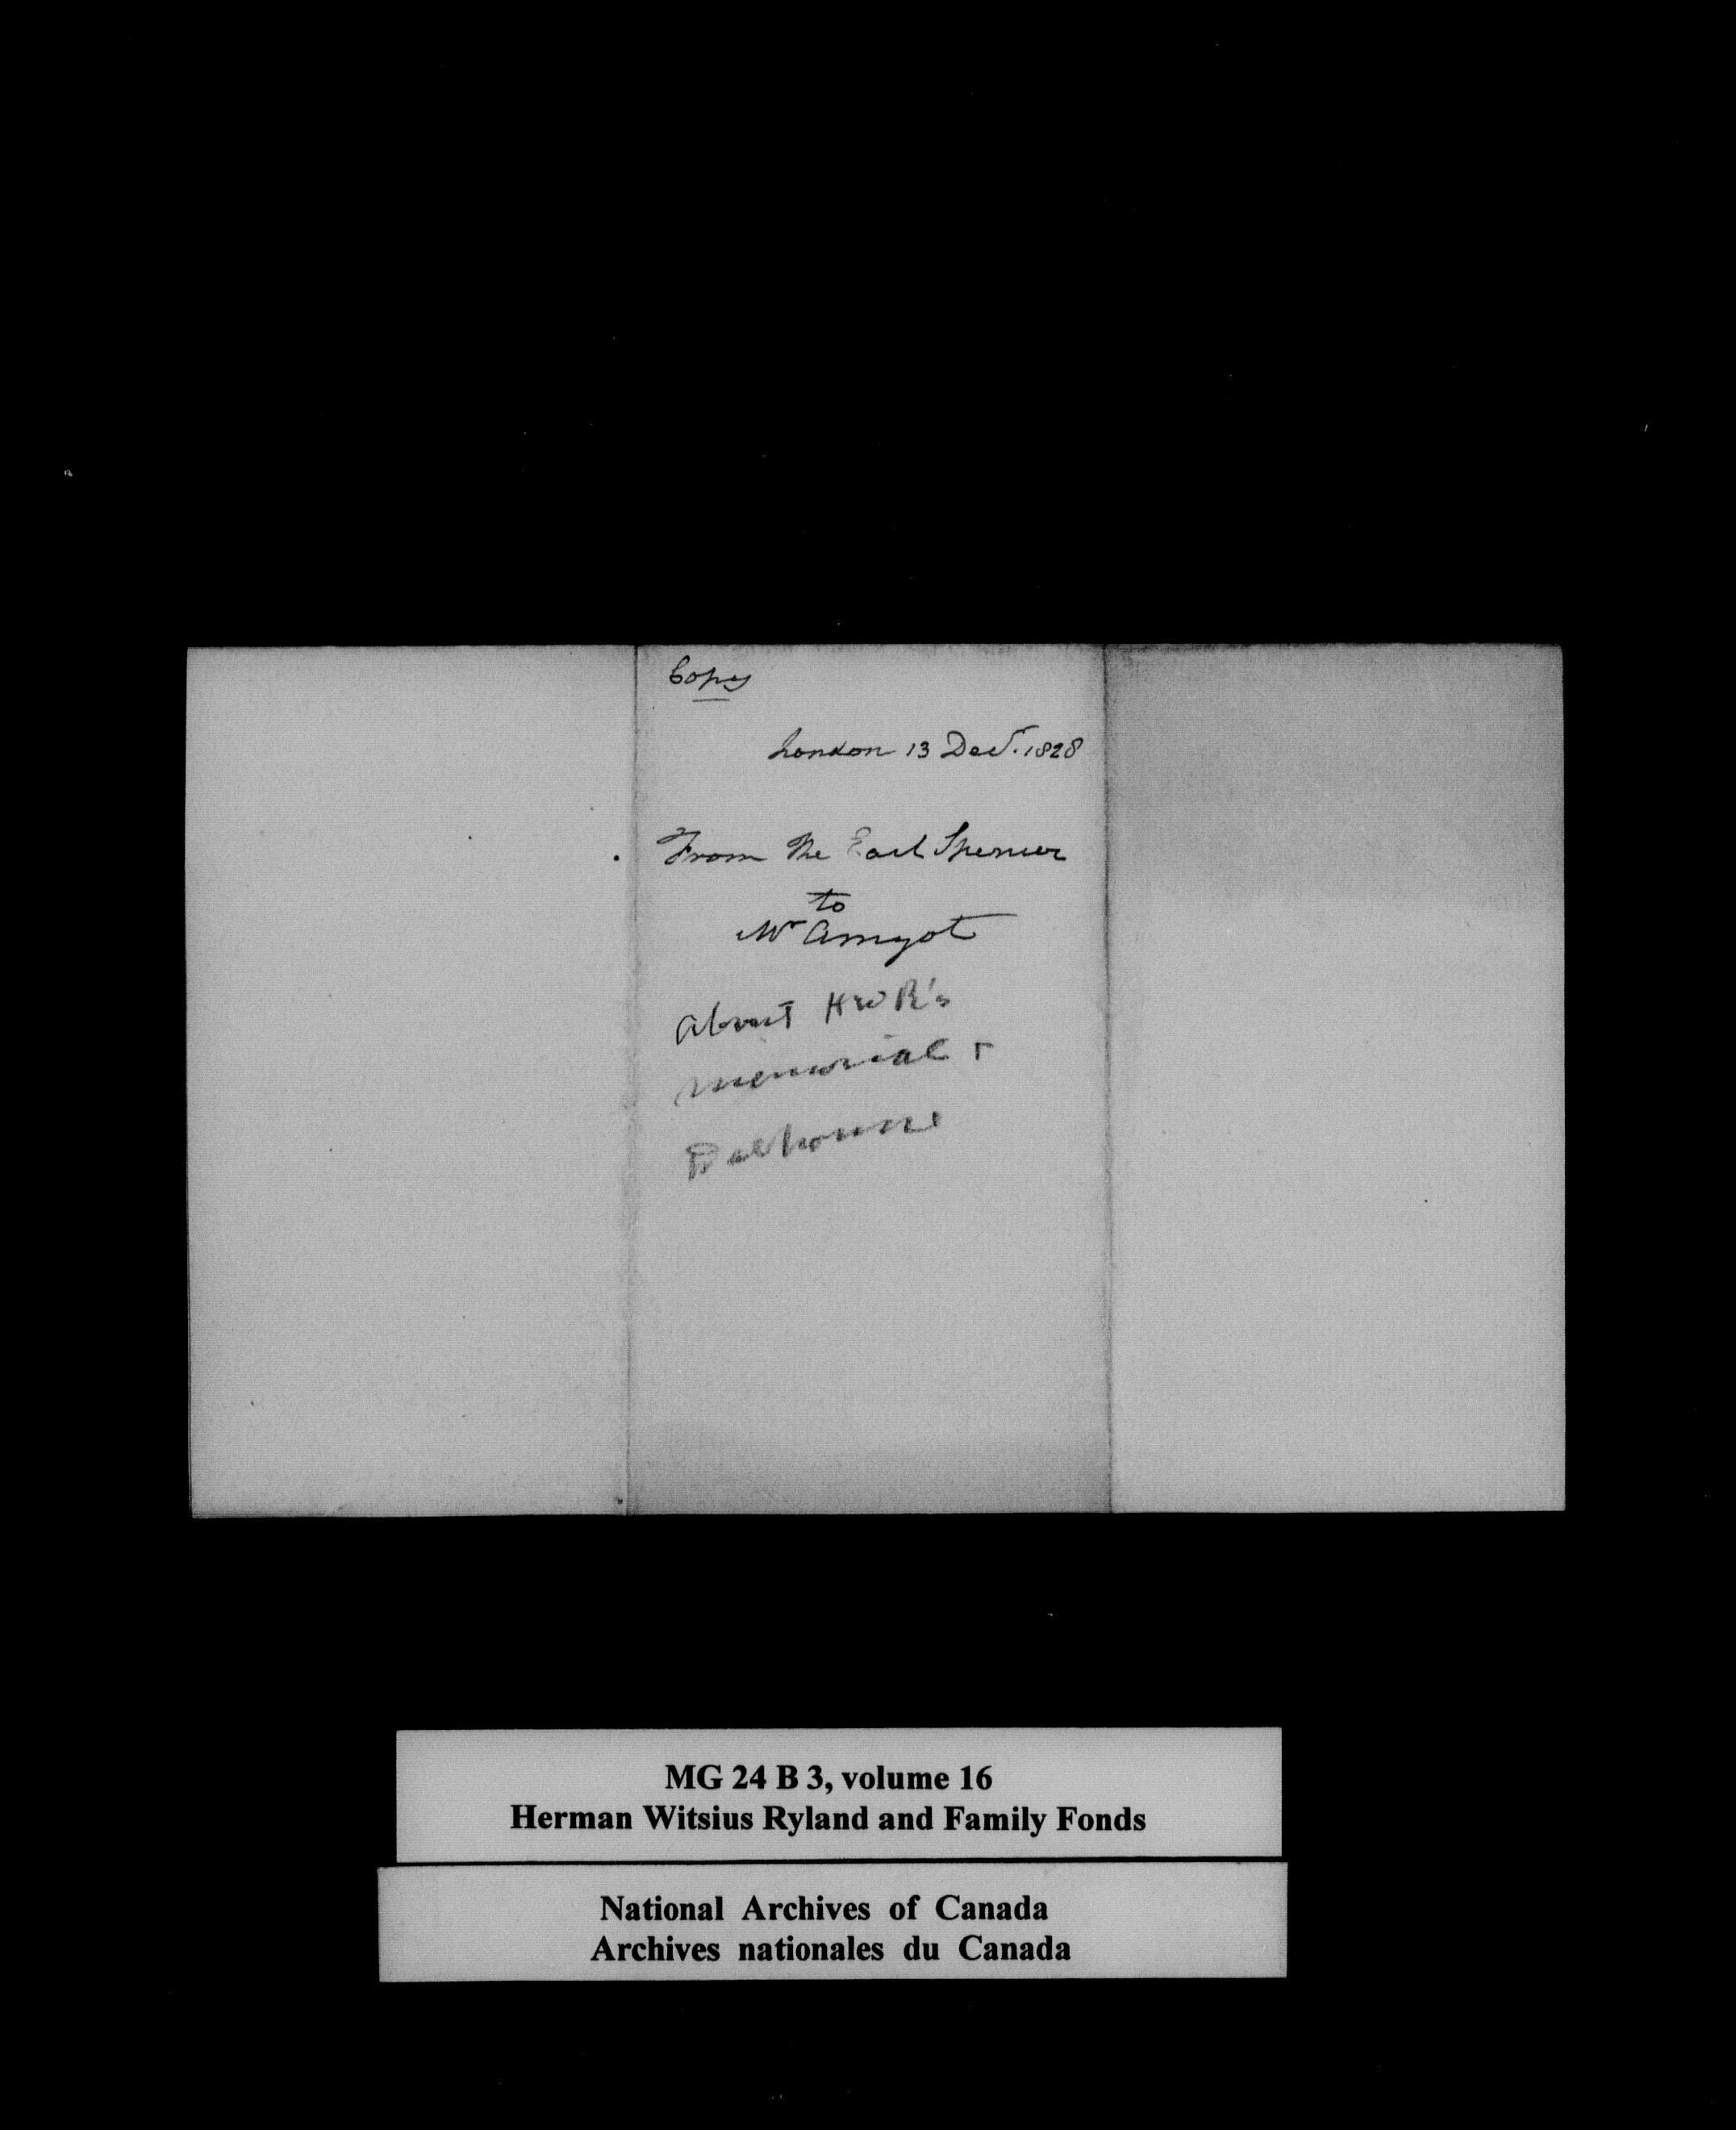 Copy
London 13 Decr. 1828
From the Earl Spencer
to
Mr Amyot
About HWR's
memorial +
Dalhousie
MG 24 B 3, volume 16
Herman Witsius Ryland and Family Fonds
National Archives of Canada
Archives nationales du Canada